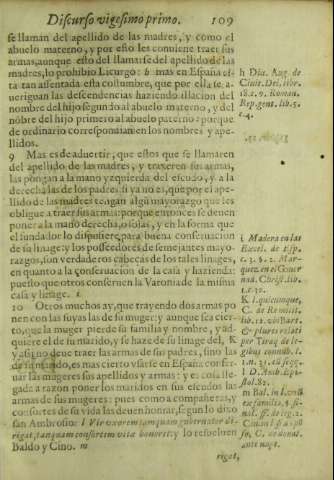 Discurso vigesimo primo. 109
se llaman del apellido de las madres, y como el
abuelo materno, y por esto les conuiene traer sus
armas, aunque esto del llamarse del apellido de las
madres, lo prohibio Licurgo: h mas en España es-
ta tan assentada esta costumbre, que por ella se a-
ueriguan las descendencias haziendo ilacion del
nombre del hijo segundo al abuelo materno, y del
nõbre del hijo primero al abuelo paterno: porque
de ordinario correspondian en los nombres y ape-
llidos.
9 Mas es de aduertir, que estos que se llamaren
del apellido de las madres, y traxeren sus armas,
las pongan a la mano yzquierda del escudo, y a la
derecha las de los padres: si ya no es, que por el ape-
llido de las madres tengan algũ mayorazgo que les
obligue a traer sus armas: porque entonces se deuen
poner a la mano derecha, o solas, y en la forma que
el fundador lo dispusiere, para buena conseruacion
de su linage: y los posseedores de semejantes mayo-
razgos, son verdaderos cabeças de los tales linages,
en quanto a la conseruacion de la casa y hazienda:
puesto que otros conseruen la Varonia de la misma
casa y linage. i
10 Otros muchos ay, que trayendo dos armas po
nen con las suyas las de su muger: y aunque sea cier-
to, que la muger pierde su familia y nombre, y ad-
quiere el de su marido, y se haze de su linage del, K
y assi no deue traer las armas de sus padres, sino las
de su marido, es mas cierto vsarse en España conser-
uar las mugeres sus apellidos y armas: y es cosa lle-
gada a razon poner los maridos en sus escudos las
armas de sus mugeres: pues como a compañeras, y
consortes de su vida las deuen honrar, segun lo dixo
san Ambrosio: l Vir vxorem tamquam gubernator di-
rigat, tanquam consortem vitæ honoret: y lo resueluen
Baldo y Cino. m
rigat,
h Diu. Aug. de
Ciuit. Dei, libr.
18. c. 9. Roman.
Rep. gent. lib. 5.
c. 4.
i Madera en las
Excel. de Esp.
quez. en el Gouer
nad. Christ. lib.
K l. quicunque,
C. de
& plures relati
per Tiraq. de le-
gibus connub. l.
l D. Amb. Epi-
stol. 82.
m Bal. in l.